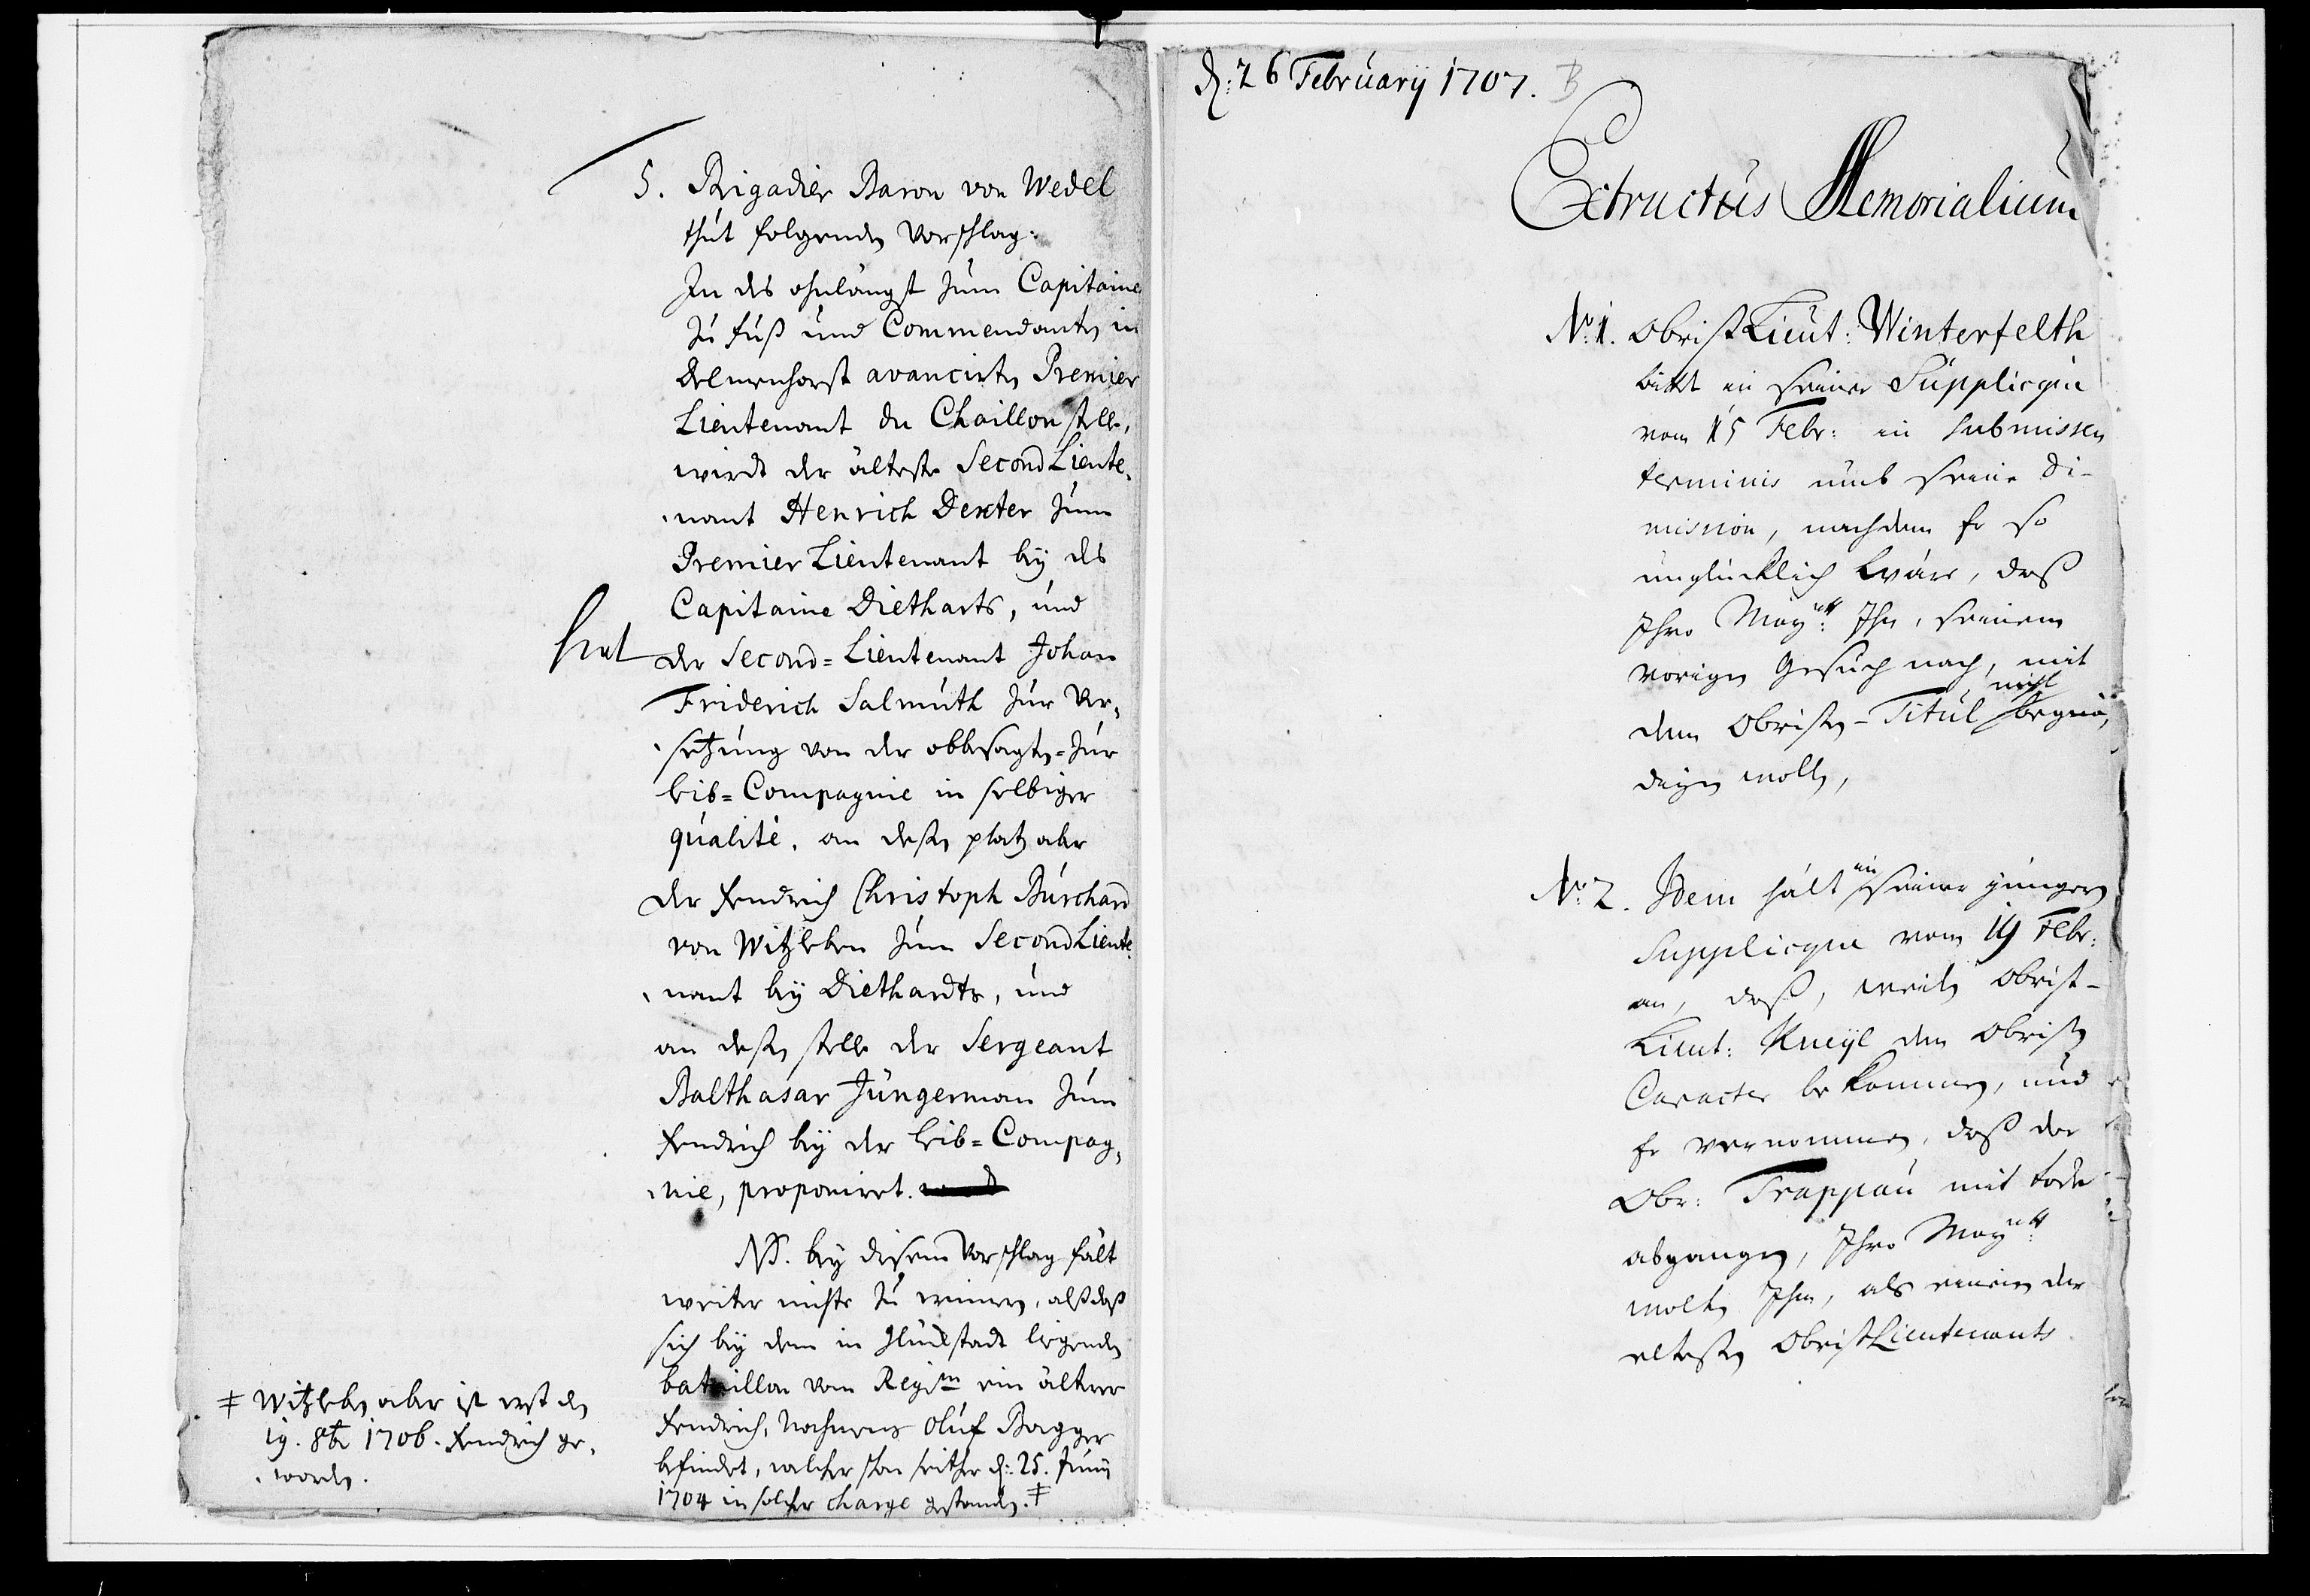 5. Brigadier Baron von Wedel
thut folgenden Vorschlag:
In des ohnlängst zum Capitaine
zu fuß und Commendanten in
Delmenhorst avancirten Premier
Lieutenant du Chaillou stelle,
wirdt der älteste Second Lieute-
nant Henrich Dexter zum
Premier Lieutenant bey des
Capitaine Dietharts, und
der Second=Lieutenant Johan
Friderich Salmuth zur Ver-
setzung von der obbesagten= zur
leib=Compagnie in selbiger
qualité, an deßen platz aber
der Fendrich Christoph Burchard
von Witzleben zum Second Lieute-
nant bey Diethardts, und
an deßen stelle der Sergeant
Balthasar Jüngerman zum
Fendrich bey der leib=Compag-
nie, proponiret.
NB. bey diesem Vorschlag fält
weiter nichts zu erinnern, alß daß
sich bey dem in Glückstadt liegenden
bataillon vom Regim ein älterer
Fendrich, Nahmens Oluf Bagger
befindet, welcher schon seither d: 25. Junij
1704 in solcher charge gestanden. ‡
‡ Witzleben aber ist erst den
19. 8br 1706. Fendrich ge-
worden.
d: 26 February 1707. B
Extractus Memorialium
No. 1. Obrist Lieut: Winterfelth
bittet in seiner Supplicque
vom 15 Febr: in submissen
terminis umb seine Di-
mission, nachdem Er so
unglücklich wäre, daß
Ihro Mayett: Ihn, seinem
vorigen Gesuch nach, mit
dem Obristen-Titul nicht begnä-
digen wollen,
No. 2. Idem hält in seiner jüngern
Supplicque vom 19 Febr:
an, daß, weilen Obrist-
Lieut: den Obristen
Caracter bekommen, und
Er vernommen, daß der
Obr: Trappau mit tode
abgangen, Ihro Mayett:
wolten Ihn, als einen der
eltesten Obrist Lieutenants